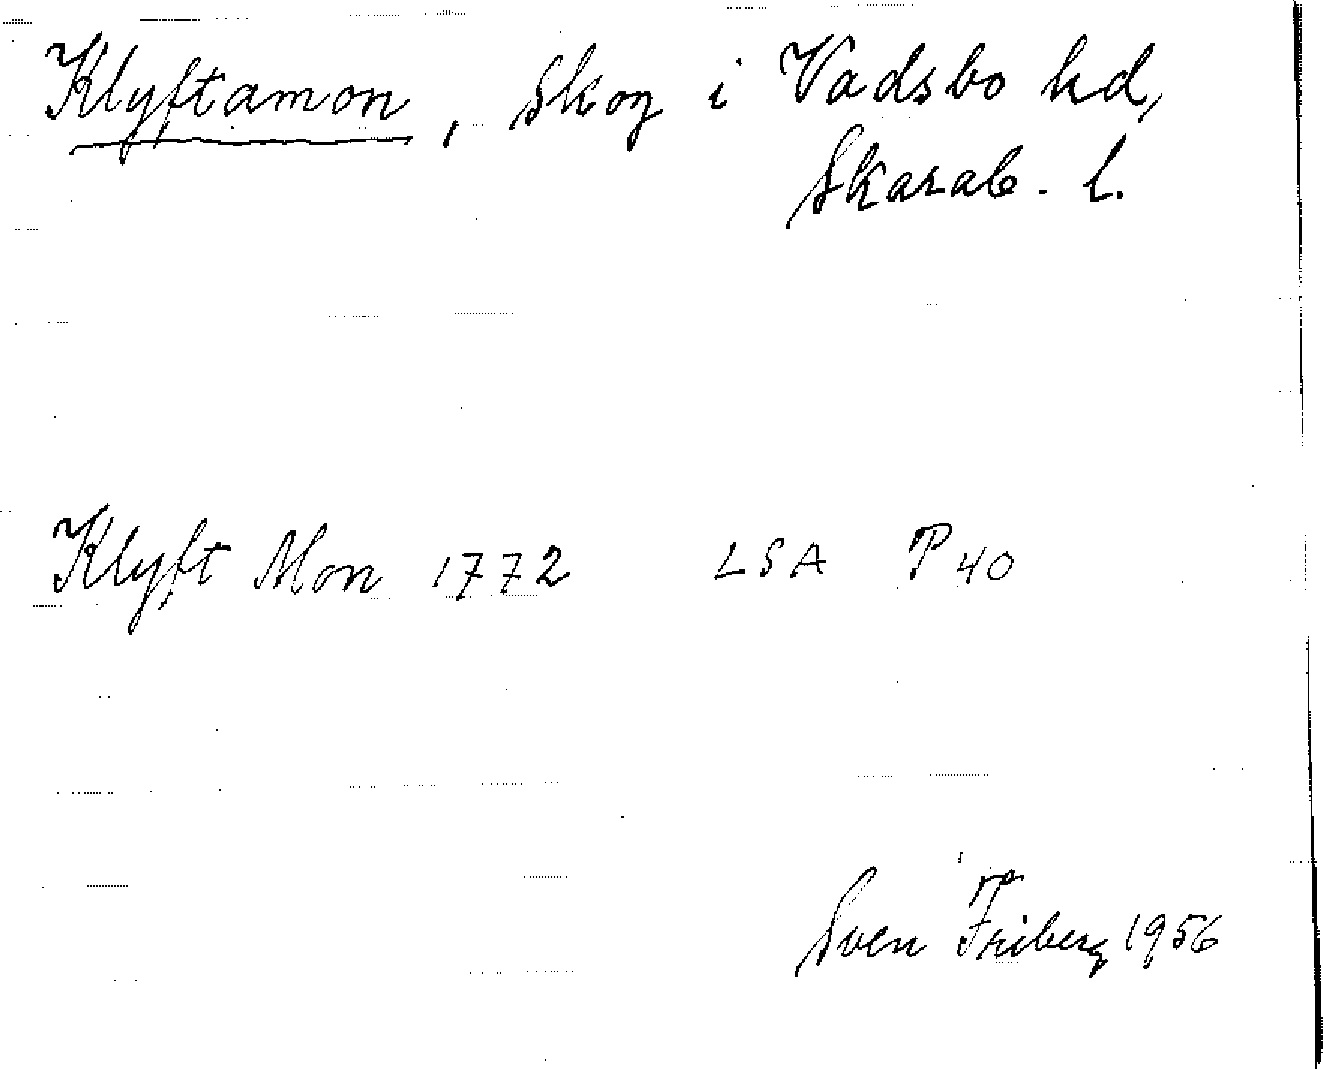 Klyftamon, Skog i Vadsbo hd,
Skarab. l.
Klyft Mon 1772 LSA P 40
Sven Friberg 1956